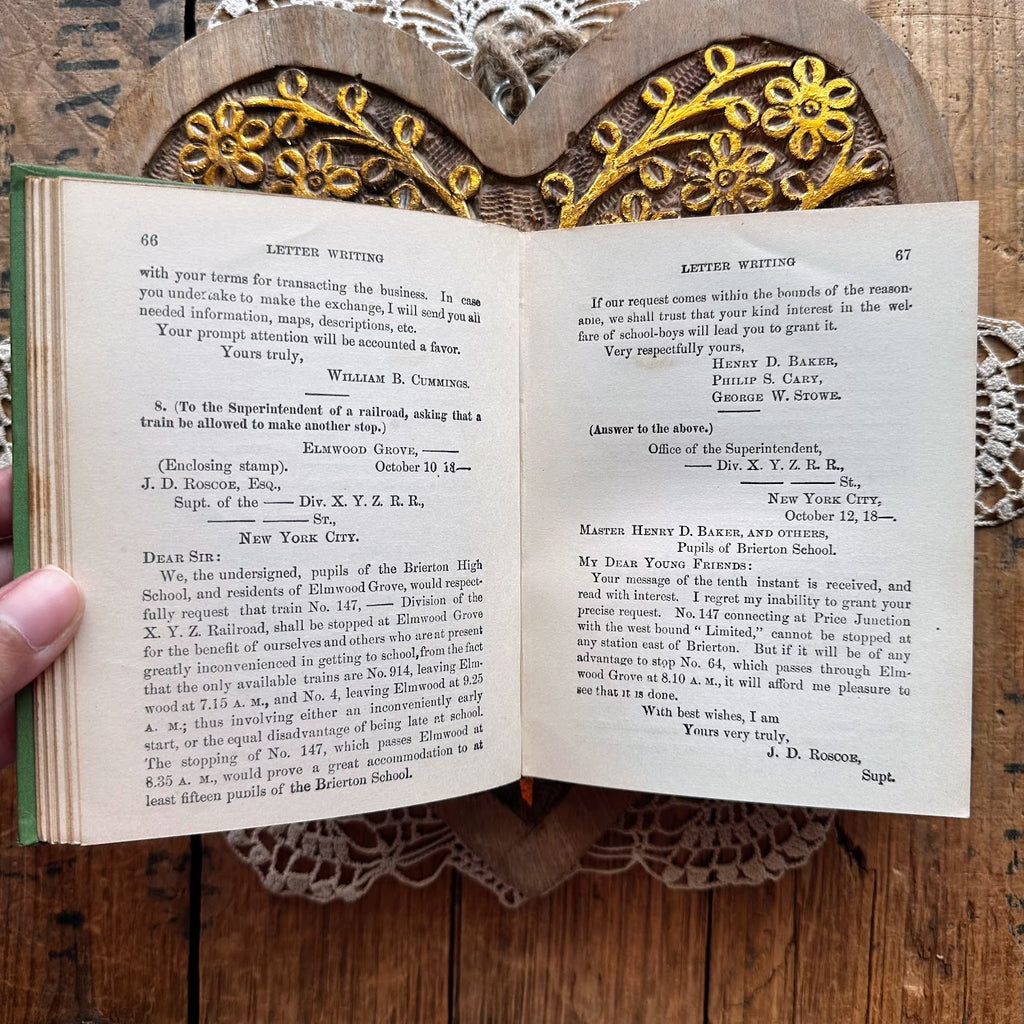 66
LETTER WRITING
with your terms for transacting the business. In case
you undertake to make the exchange, I will send you all
needed information, maps, descriptions, etc.
Your prompt attention will be accounted a favor.
Yours truly,
WILLIAM B. CUMMINGS.
8. (To the Superintendent of a railroad, asking that a
train be allowed to make another stop.)
ELMWOOD GROVE, ——
(Enclosing stamp). October 10 18—
J. D. ROSCOE, ESQ.,
Supt. of the —— Div. X. Y. Z. R. R.,
—— —— ST.,
NEW YORK CITY.
DEAR SIR:
We, the undersigned, pupils of the Brierton High
School, and residents of Elmwood Grove, would respect-
fully request that train No. 147, —— Division of the
X. Y. Z. Railroad, shall be stopped at Elmwood Grove
for the benefit of ourselves and others who are at present
greatly inconvenienced in getting to school, from the fact
that the only available trains are No. 914, leaving Elm-
wood at 7.15 A. M., and No. 4, leaving Elmwood at 9.25
A. M.; thus involving either an inconveniently early
start, or the equal disadvantage of being late at school.
The stopping of No. 147, which passes Elmwood at
8.35 A. M., would prove a great accommodation to at
least fifteen pupils of the Brierton School.
LETTER WRITING
67
If our request comes within the bounds of the reason-
able, we shall trust that your kind interest in the wel-
fare of school-boys will lead you to grant it.
Very respectfully yours,
HENRY D. BAKER,
PHILIP S. CARY,
GEORGE W. STOWE.
(Answer to the above.)
Office of the Superintendent,
—— Div. X. Y. Z. R. R.,
—— —— St.,
NEW YORK CITY,
October 12, 18—.
MASTER HENRY D. BAKER, AND OTHERS,
Pupils of Brierton School.
MY DEAR YOUNG FRIENDS:
Your message of the tenth instant is received, and
read with interest. I regret my inability to grant your
precise request. No. 147 connecting at Price Junction
with the west bound "Limited," cannot be stopped at
any station east of Brierton. But if it will be of any
advantage to stop No. 64, which passes through Elm-
wood Grove at 8.10 A. M., it will afford me pleasure to
see that it is done.
With best wishes, I am
Yours very truly,
J. D. ROSCOE,
Supt.